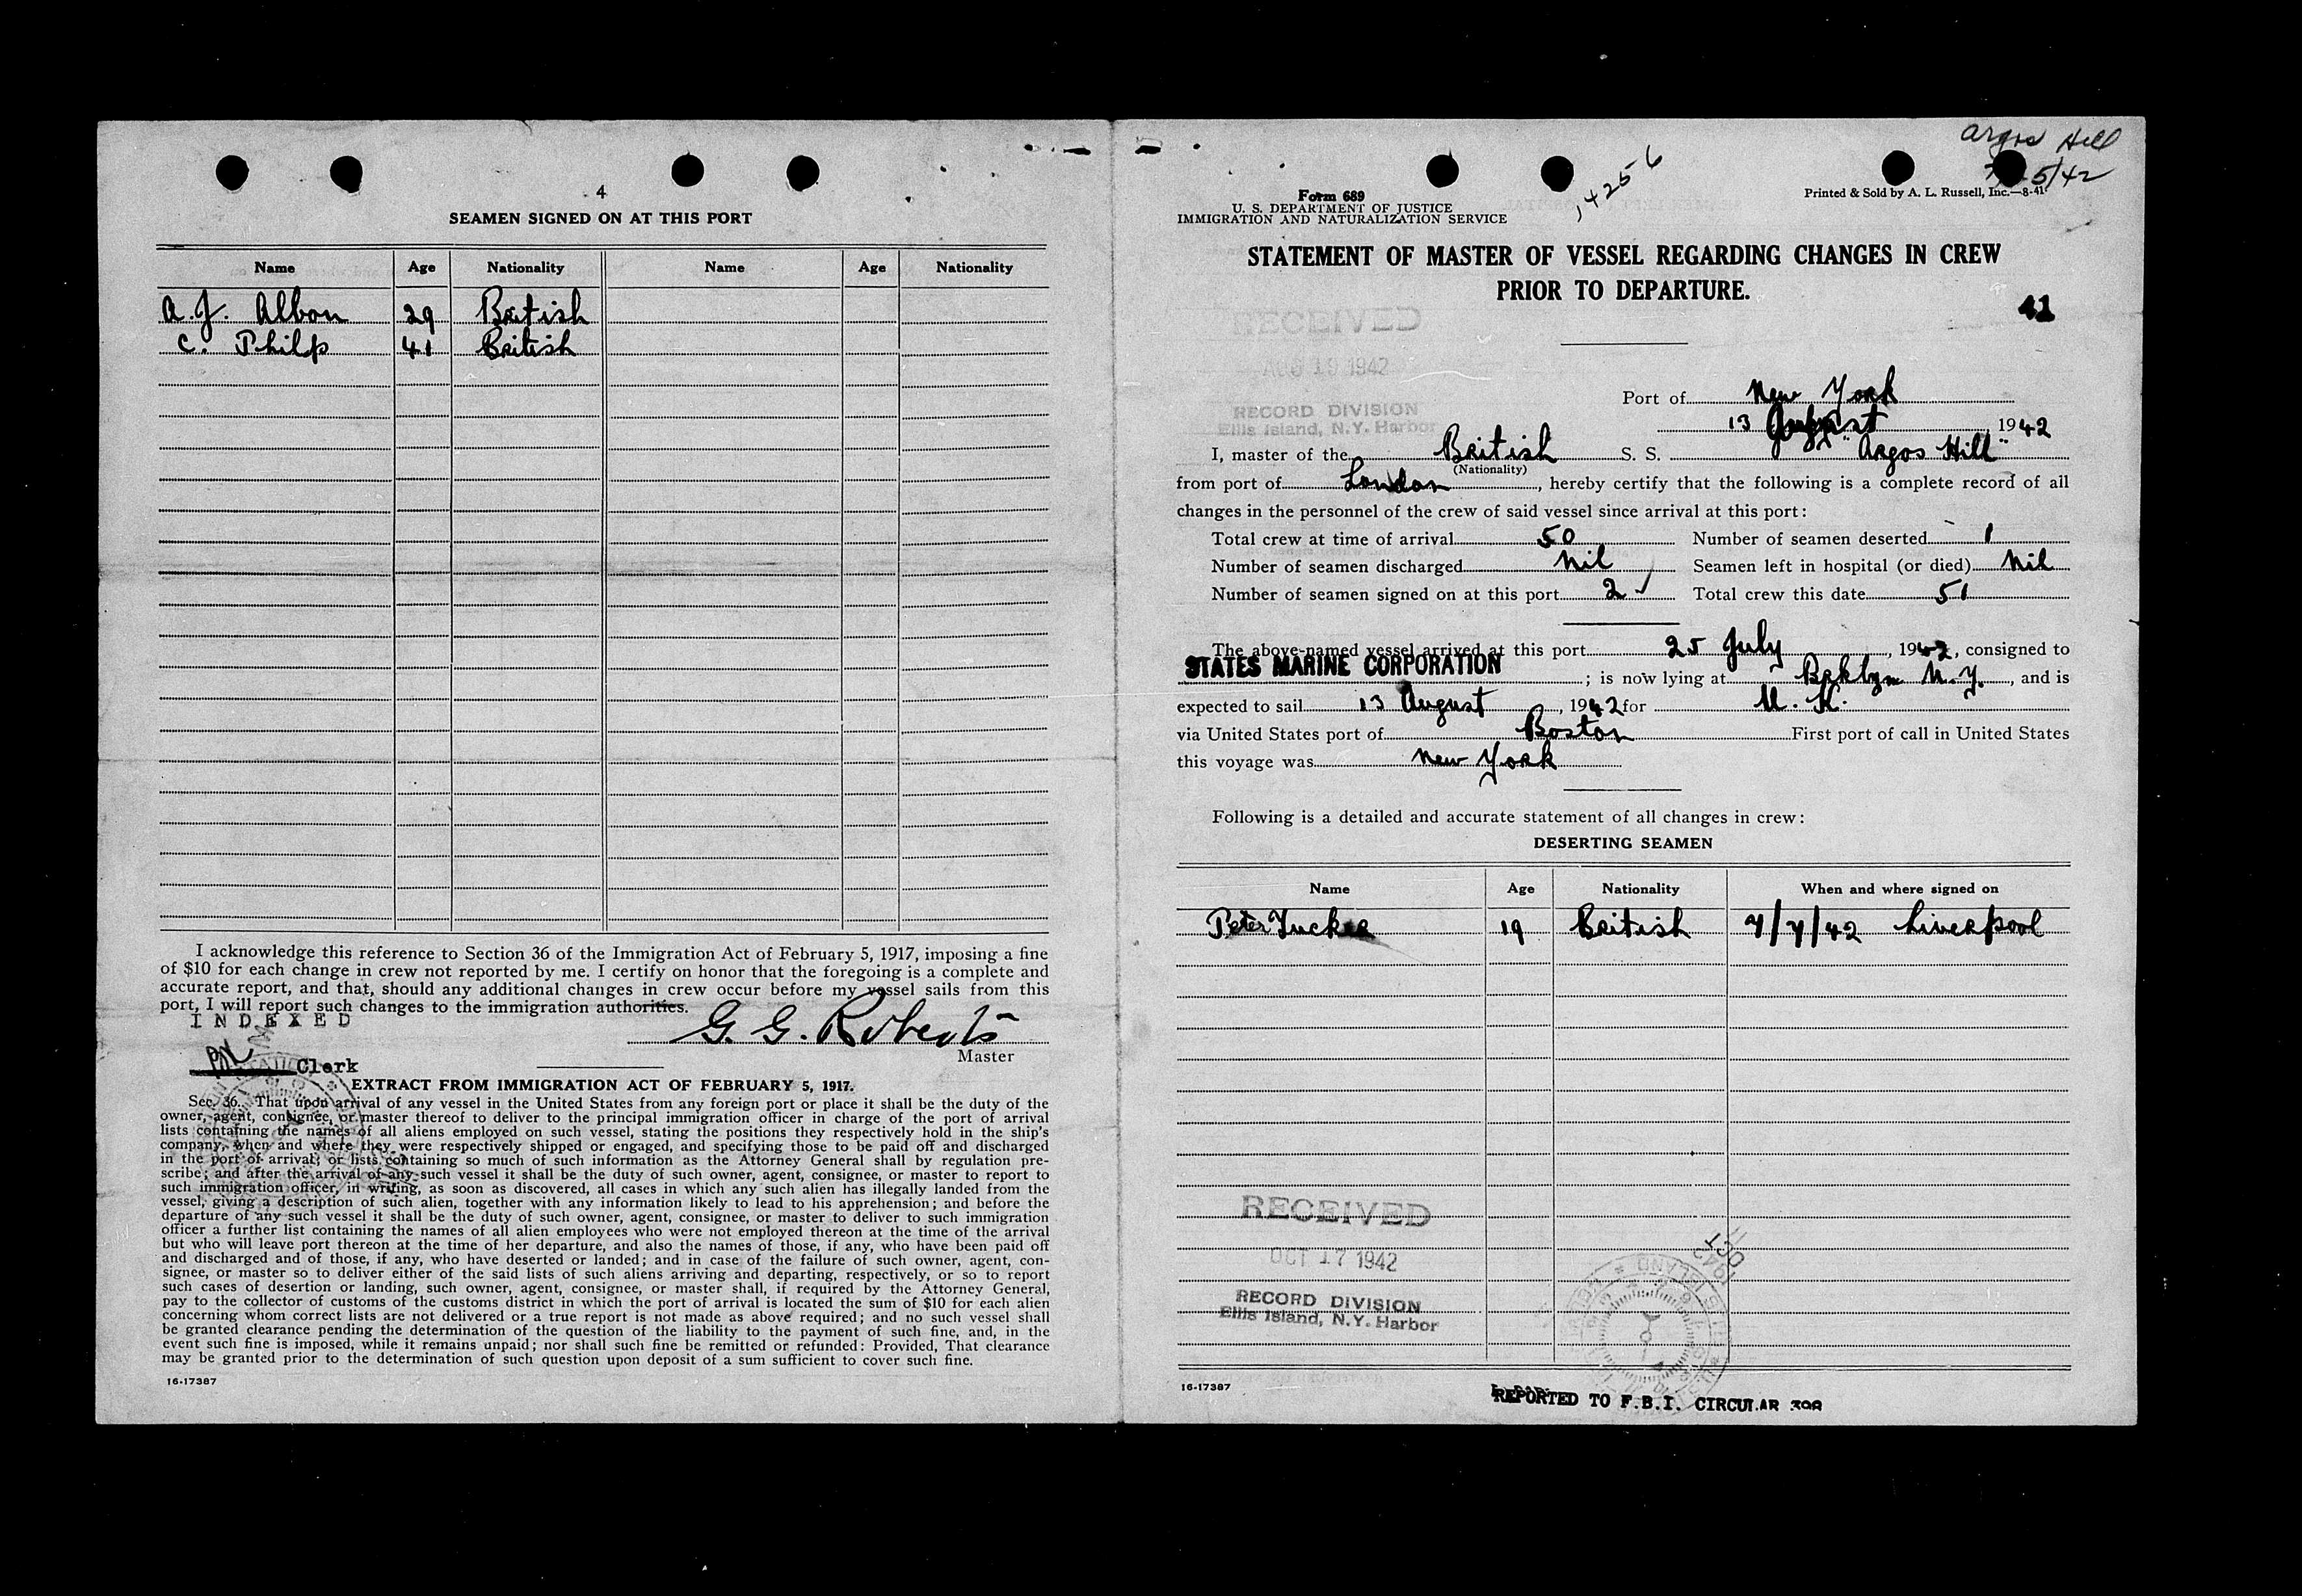 4
SEAMEN SIGNED ON AT THIS PORT
Name Age Nationality Name Age Nationality
A. J. Albon 29 British
C. Philp 41 British
I acknowledge this reference to Section 36 of the Immigration Act of February 5, 1917, imposing a fine
of $10 for each change in crew not reported by me. I certify on honor that the foregoing is a complete and
accurate report, and that, should any additional changes in crew occur before my vessel sails from this
port, I will report such changes to the immigration authorities.
INDEXED
G. G. Roberts
Master
Clerk
EXTRACT FROM IMMIGRATION ACT OF FEBRUARY 5, 1917.
Sec. 36. That upon arrival of any vessel in the United States from any foreign port or place it shall be the duty of the
owner, agent, consignee, or master thereof to deliver to the principal immigration officer in charge of the port of arrival
lists containing the names of all aliens employed on such vessel, stating the positions they respectively hold in the ship's
company, when and where they were respectively shipped or engaged, and specifying those to be paid off and discharged
in the port of arrival; or lists containing so much of such information as the Attorney General shall by regulation pre-
scribe; and after the arrival of any such vessel it shall be the duty of such owner, agent, consignee, or master to report to
such immigration officer, in writing, as soon as discovered, all cases in which any such alien has illegally landed from the
vessel, giving a description of such alien, together with any information likely to lead to his apprehension; and before the
departure of any such vessel it shall be the duty of such owner, agent, consignee, or master to deliver to such immigration
officer a further list containing the names of all alien employees who were not employed thereon at the time of the arrival
but who will leave port thereon at the time of her departure, and also the names of those, if any, who have been paid off
and discharged and of those, if any, who have deserted or landed; and in case of the failure of such owner, agent, con-
signee, or master so to deliver either of the said lists of such aliens arriving and departing, respectively, or so to report
such cases of desertion or landing, such owner, agent, consignee, or master shall, if required by the Attorney General,
pay to the collector of customs of the customs district in which the port of arrival is located the sum of $10 for each alien
concerning whom correct lists are not delivered or a true report is not made as above required; and no such vessel shall
be granted clearance pending the determination of the question of the liability to the payment of such fine, and, in the
event such fine is imposed, while it remains unpaid; nor shall such fine be remitted or refunded: Provided, That clearance
may be granted prior to the determination of such question upon deposit of a sum sufficient to cover such fine.
16-17387
Argos Hill
5/42
14256
Form 689
U. S. DEPARTMENT OF JUSTICE
IMMIGRATION AND NATURALIZATION SERVICE
Printed & Sold by A. L. Russell, Inc.—8-41
STATEMENT OF MASTER OF VESSEL REGARDING CHANGES IN CREW
PRIOR TO DEPARTURE.
41
RECEIVED
AUG 19 1942
RECORD DIVISION
Ellis Island, N.Y. Harbor
Port of New York
13 August 1942
I, master of the British S. S. "Argos Hill"
(Nationality)
from port of London, hereby certify that the following is a complete record of all
changes in the personnel of the crew of said vessel since arrival at this port:
Total crew at time of arrival 50 Number of seamen deserted 1
Number of seamen discharged Nil Seamen left in hospital (or died) Nil
Number of seamen signed on at this port 2 ✓ Total crew this date 51
The above-named vessel arrived at this port 25 July, 1942, consigned to
STATES MARINE CORPORATION; is now lying at Bklyn N.Y., and is
expected to sail 13 August, 1942 for U. K.
via United States port of Boston First port of call in United States
this voyage was New York
Following is a detailed and accurate statement of all changes in crew:
DESERTING SEAMEN
Name Age Nationality When and where signed on
Peter Tucker 19 British 7/7/42 Liverpool
RECEIVED
OCT 17 1942
RECORD DIVISION
Ellis Island, N.Y. Harbor
16-17387
REPORTED TO F.B.I. CIRCULAR